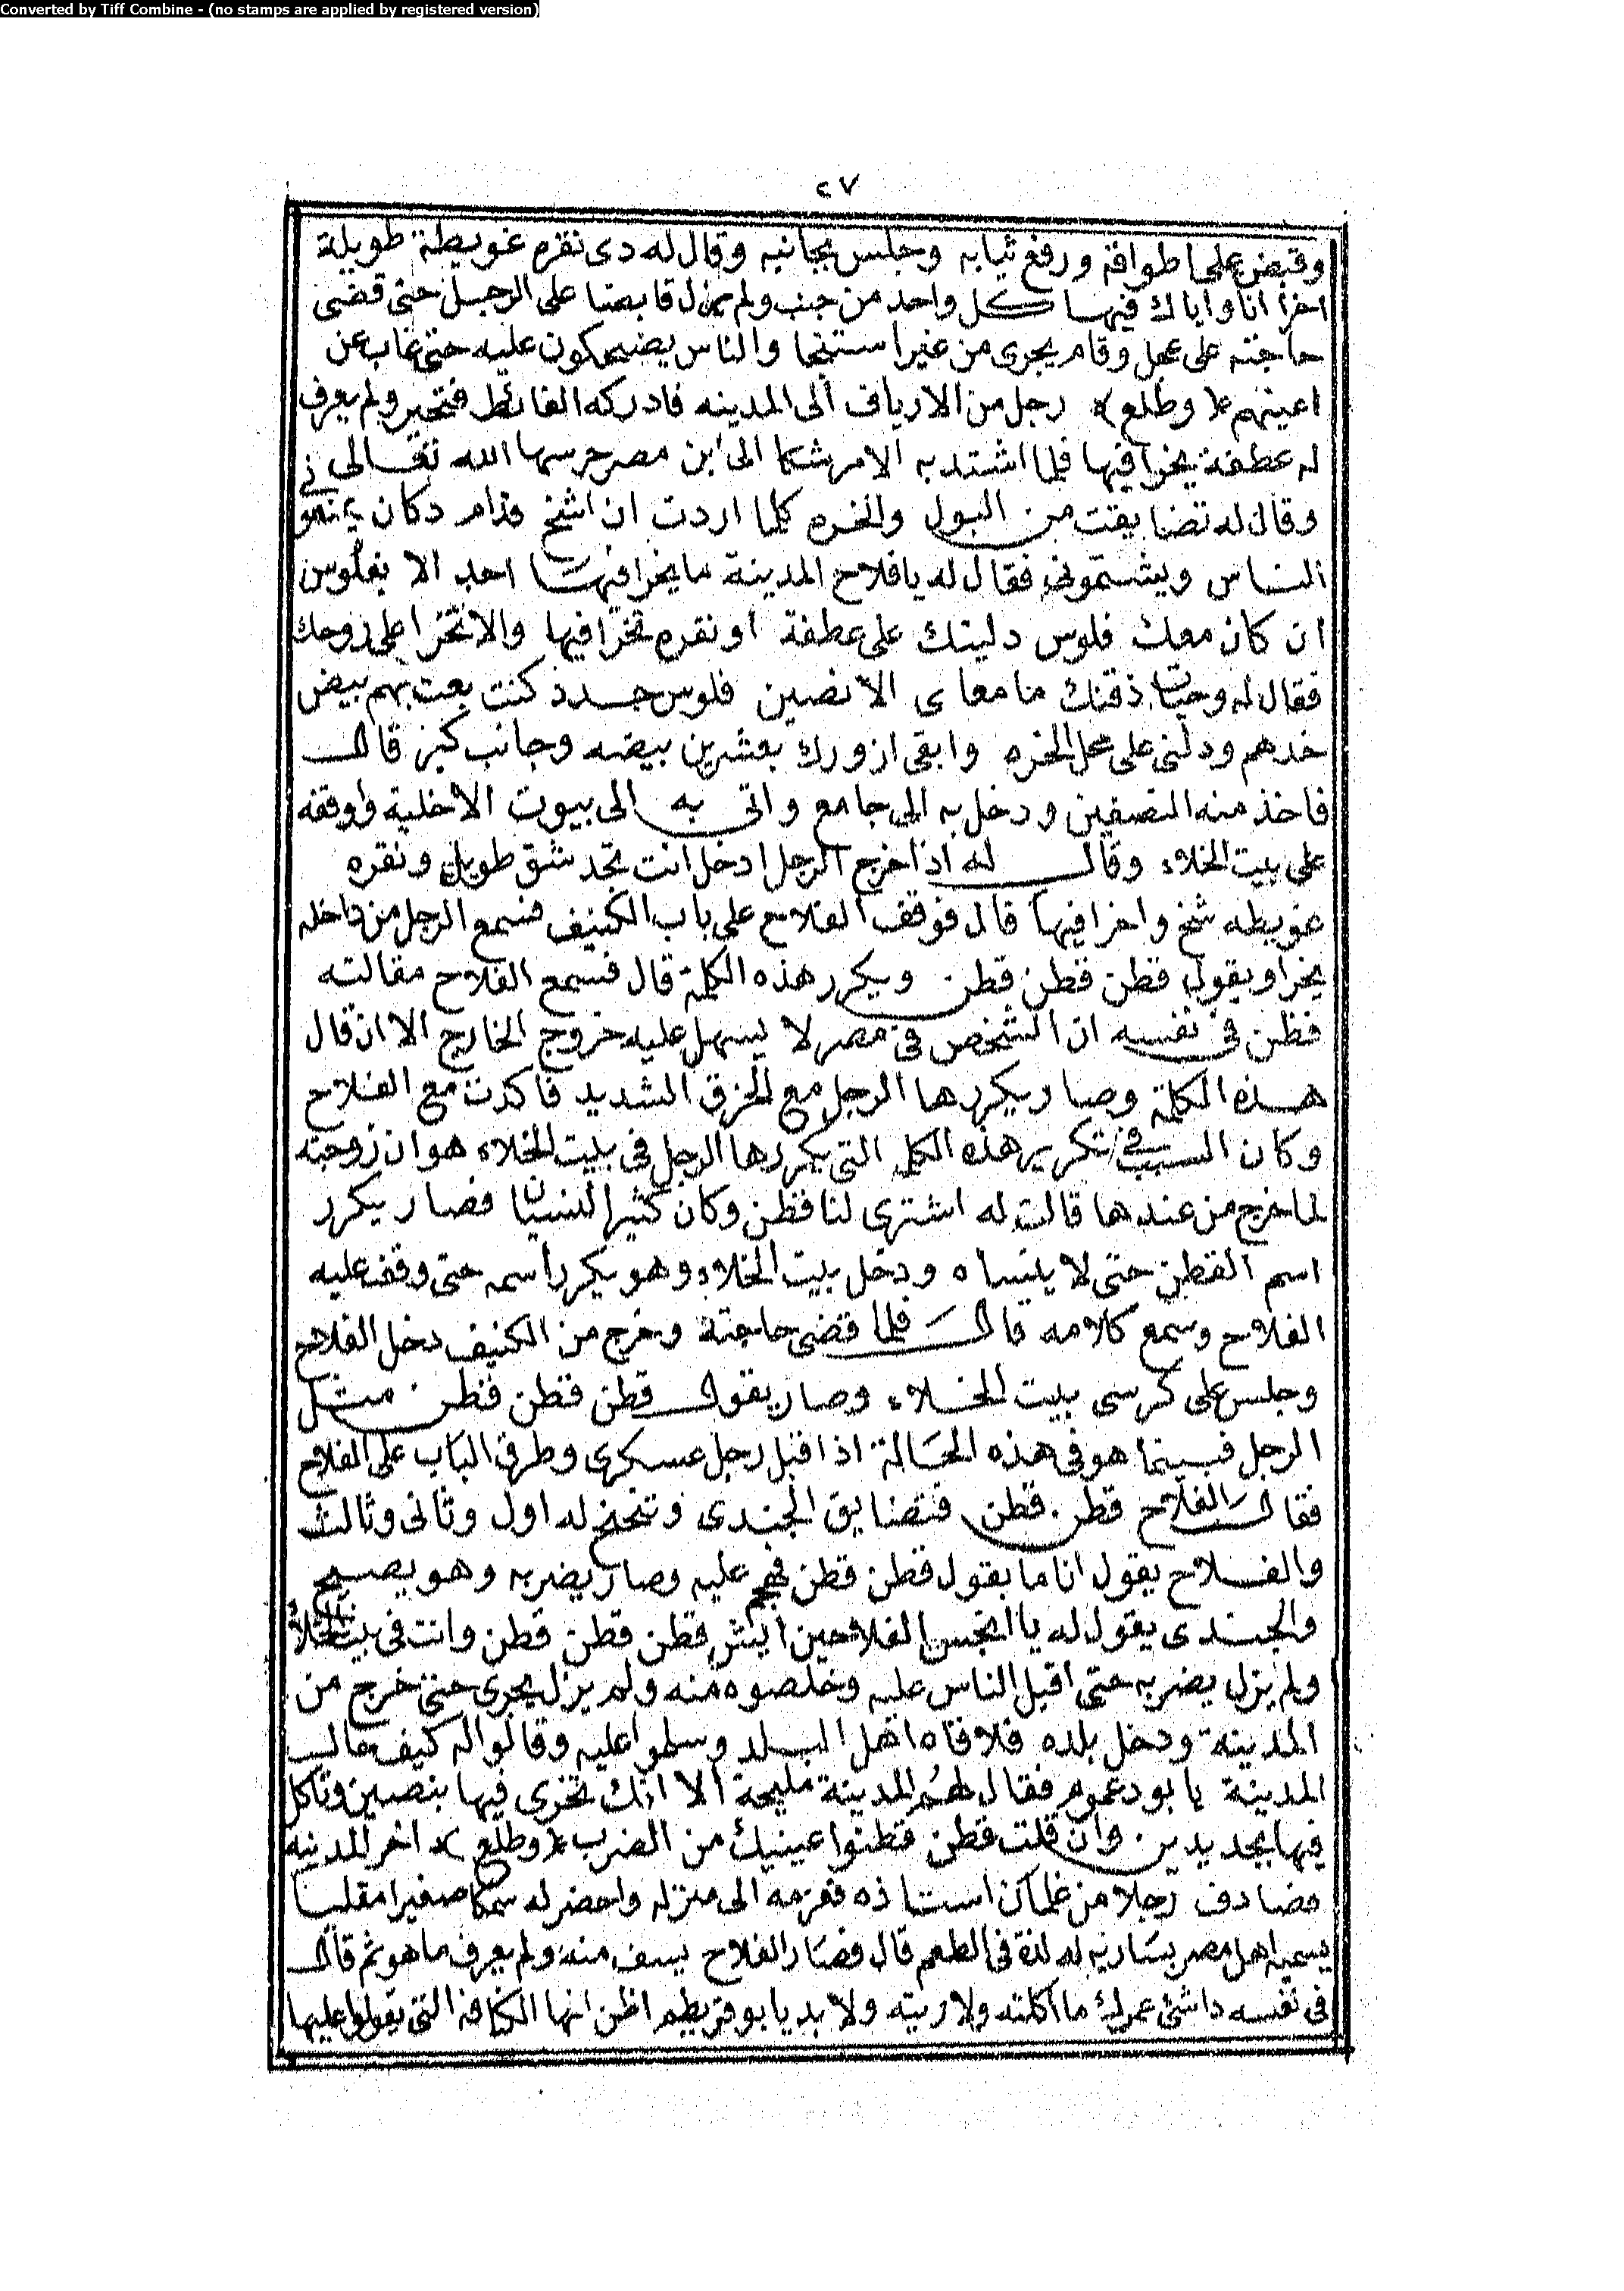 Converted by Tiff Combine - (no stamps are applied by registered version)
٢٧
وقبض على اطواقه ورفع ثيابه وجلس بجانبه وقال له دى نقره غويطة طويلة
اخرا انا واياك فيها كل واحد من جنب ولم يزل قابضا على الرجل حتى قضى
حاجته على عجل وقام يجرى من غير استنجا والناس يضحكون عليه حتى غاب عن
اعينهم * (وطلع) * رجل من الارياف الى المدينه فادركه الغائط فتحير ولم يعرف
له عطفة يخرا فيها فلما اشتد به الامر شكا الى ابن مصر حرسها الله تعالى
وقال له تضايقت من البول والخره كلما اردت ان اشخ قدام دكان يمنعونى
الناس ويشتمونى فقال له يا فلاح المدينة ما يخرا فيها احد الا بفلوس
ان كان معك فلوس دليتك على عطفة او نقره تخرا فيها والا تخرا على روحك
فقال له وحيات ذقنك ما معاى الا نصين فلوس جدد كنت بعت بهم بيض
خدهم ودلنى على محل الخره وابقى ازورك بعشرين بيضه وجانب كبز قال
فاخذ منه النصفين ودخل به الى جامع واتى به الى بيوت الاخلية واوقفه
على بيت الخلاء وقال له اذا خرج الرجل ادخل انت تجد شق طويل ونقره
غويطه شخ واخرا فيها قال فوقف الفلاح على باب الكنيف فسمع الرجل من داخله
يخرا ويقول قطن قطن قطن ويكرر هذه الكلمة قال فسمع الفلاح مقالته
فظن فى نفسه ان الشخص فى مصر لا يسهل عليه خروج الخارج الا ان قال
هذه الكلمة وصار يكررها الرجل مع الحزق الشديد فاكدت مع الفلاح
وكان السبب فى تكرير هذه الكلمه التى يكررها الرجل فى بيت الخلاء هو ان زوجته
لما خرج من عندها قالت له اشترى لنا قطن وكان كثير النسيان فصار يكرر
اسم القطن حتى لا ينساه ودخل بيت الخلاء وهو يكرر اسمه حتى وقف عليه
الفلاح وسمع كلامه قال فلما قضى حاجته وخرج من الكنيف دخل الفلاح
وجلس على كرسى بيت الخلاء وصار يقول قطن قطن قطن مثل
الرجل فبينما هو فى هذه الحالة اذ اقبل رجل عسكرى وطرق الباب على الفلاح
فقال الفلاح قطن قطن فتضايق الجندى وتنحنح له اول وثانى وثالث
والفلاح يقول انا ما بقول قطن قطن فهجم عليه وصار يضربه وهو يصيح
والجندى يقول له يا انجس الفلاحين ايش قطن قطن قطن وانت فى بيت الخلا
ولم يزل يضربه حتى اقبل الناس عليه وخلصوه منه ولم يزل يجرى حتى خرج من
المدينة ودخل بلده فلاقاه اهل البلد وسلموا عليه وقالوا له كيف حال
المدينة يا بو دعموم فقال لهم المدينة مليحة الا انك تخرى فيها بنصين وتاكل
فيها بجديدين وان قلت قطن قطنوا عينيك من الضرب * (وطلع) * اخر المدينه
فصادف رجلا من غلمان استاذه فعزمه الى منزله واحضر له سمكا صغيرا مقليا
يسميه اهل مصر بساريه له لذة فى الطعم قال فصار الفلاح يسف منه ولم يعرف ما هو ثم قال
فى نفسه داشئ عمرك ما اكلته ولا ريته ولا بد يا بو قريطم اظن انها الكنافه التى يقولوا عليها